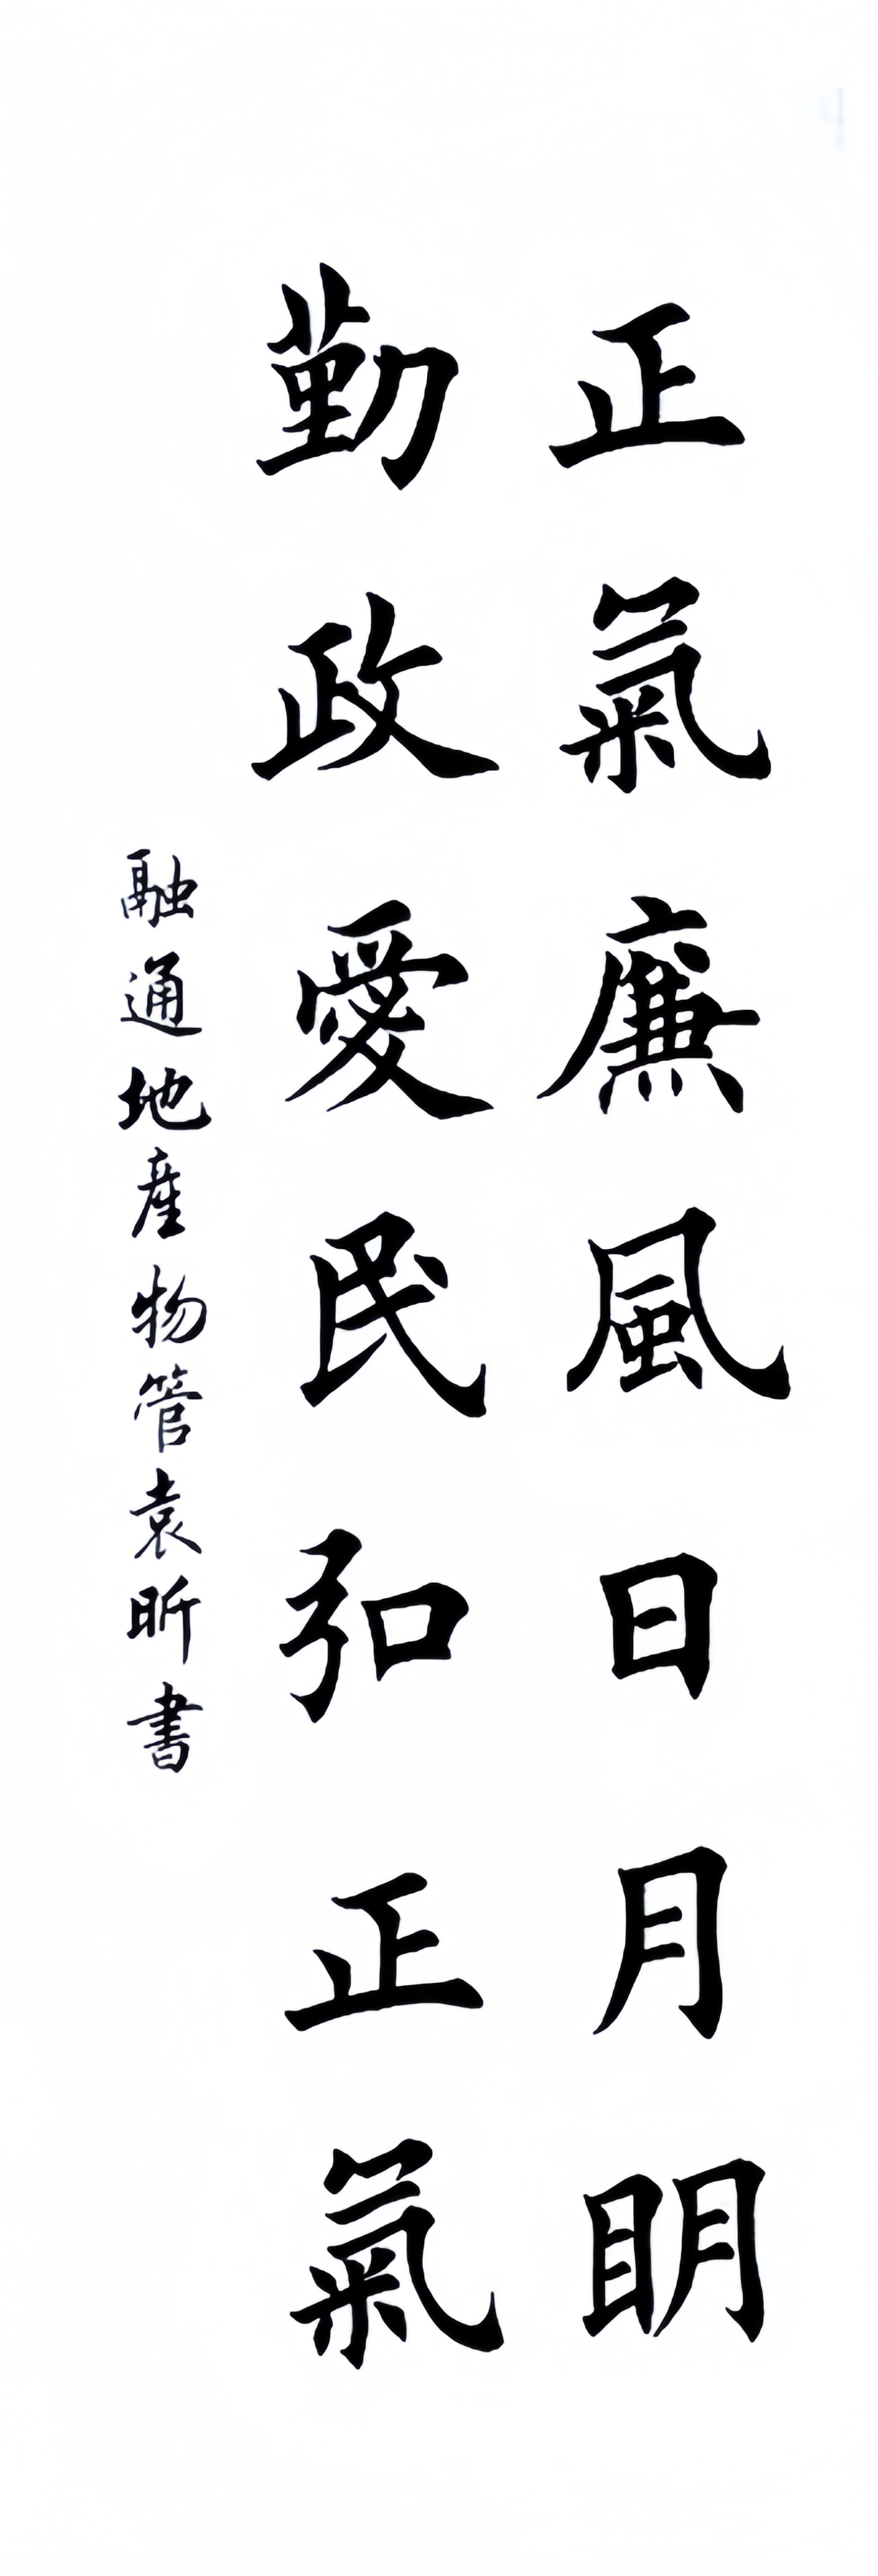 正氣廉風日月明
勤政愛民弘正氣
融通地產物管袁昕書